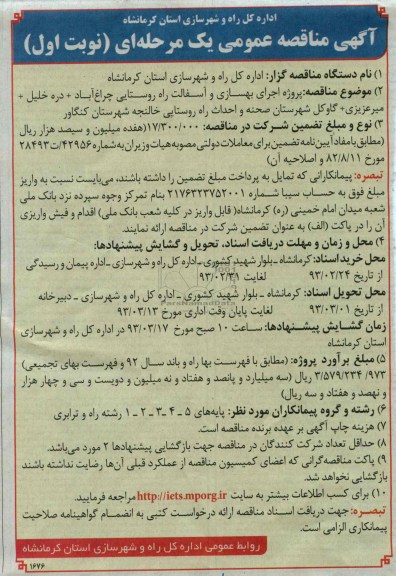 اداره کل راه و شهرسازی استان کرمانشاه
آگهی مناقصه عمومی یک مرحله‌ای (نوبت اول)
۱) نام دستگاه مناقصه گزار: اداره کل راه و شهرسازی استان کرمانشاه
۲) موضوع مناقصه: پروژه اجرای بهسازی و آسفالت راه روستایی چراغ‌آباد + دره خلیل +
میرعزیزی + گاوکل شهرستان صحنه و احداث راه روستایی خالنجه شهرستان کنگاور
۳) نوع و مبلغ تضمین شرکت در مناقصه: ۱۷/۳۰۰/۰۰۰ (هفده میلیون و سیصد هزار ریال
(مطابق با مفاد آیین نامه تضمین برای معاملات دولتی مصوبه هیات وزیران به شماره ۴۲۹۵۶/ت۲۸۴۹۳
مورخ ۸۲/۸/۱۱ و اصلاحیه آن)
تبصره: پیمانکارانی که تمایل به پرداخت مبلغ تضمین را داشته باشند، می‌بایست نسبت به واریز
مبلغ فوق به حساب سیبا شماره ۲۱۷۶۳۲۳۷۵۲۰۰۱ بنام تمرکز وجوه سپرده نزد بانک ملی
شعبه میدان امام خمینی (ره) کرمانشاه( قابل واریز در کلیه شعب بانک ملی) اقدام و فیش واریزی
آن را در پاکت (الف) به عنوان تضمین شرکت در مناقصه ارائه نمایند.
۴) محل و زمان و مهلت دریافت اسناد، تحویل و گشایش پیشنهادها:
محل خرید اسناد: کرمانشاه ـ بلوار شهید کشوری ـ اداره کل راه و شهرسازی ـ اداره پیمان و رسیدگی
از تاریخ ۹۳/۰۲/۲۴ لغایت ۹۳/۰۲/۳۱
محل تحویل اسناد: کرمانشاه ـ بلوار شهید کشوری ـ اداره کل راه و شهرسازی ـ دبیرخانه
از تاریخ ۹۳/۰۳/۰۱ لغایت پایان وقت اداری مورخ ۹۳/۰۳/۱۳
زمان گشایش پیشنهادها: ساعت ۱۰ صبح مورخ ۹۳/۰۳/۱۷ در اداره کل راه و شهرسازی
استان کرمانشاه
۵) مبلغ برآورد پروژه: (مطابق با فهرست بها راه و باند سال ۹۲ و فهرست بهای تجمیعی)
۳/۵۷۹/۲۳۴/۹۷۳ ریال (سه میلیارد و پانصد و هفتاد و نه میلیون و دویست و سی و چهار هزار
و نهصد و هفتاد و سه ریال)
۶) رشته و گروه پیمانکاران مورد نظر: پایه‌های ۵ ـ ۴ ـ ۳ ـ ۲ ـ ۱ رشته راه و ترابری
۷) هزینه چاپ آگهی بر عهده برنده مناقصه است.
۸) حداقل تعداد شرکت کنندگان در مناقصه جهت بازگشایی پیشنهادها ۲ مورد می‌باشد.
۹) پاکت مناقصه‌گرانی که اعضای کمیسیون مناقصه از عملکرد قبلی آن‌ها رضایت نداشته باشند
بازگشایی نخواهد شد.
۱۰) برای کسب اطلاعات بیشتر به سایت http://iets.mporg.ir مراجعه فرمایید.
تبصره: جهت دریافت اسناد مناقصه ارائه درخواست کتبی به انضمام گواهینامه صلاحیت
پیمانکاری الزامی است.
روابط عمومی اداره کل راه و شهرسازی استان کرمانشاه
۱۶۷۶